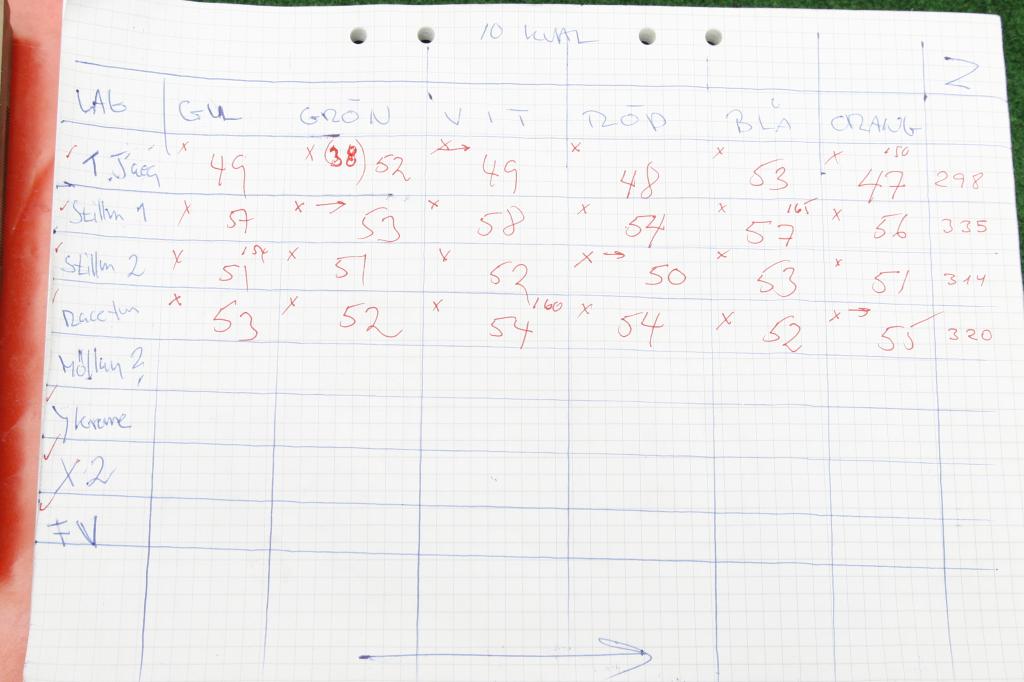 10 KVAL
LAG GUL GRÖN VIT RÖD BLÅ ORANG
49 (38) 52 49 48 53 47 150 298
Stillm 1 57 53 58 54 57 165 56 335
Stillm 2 51 154 51 52 50 53 51 314
53 52 54 160 54 52 55 320
X2
FV